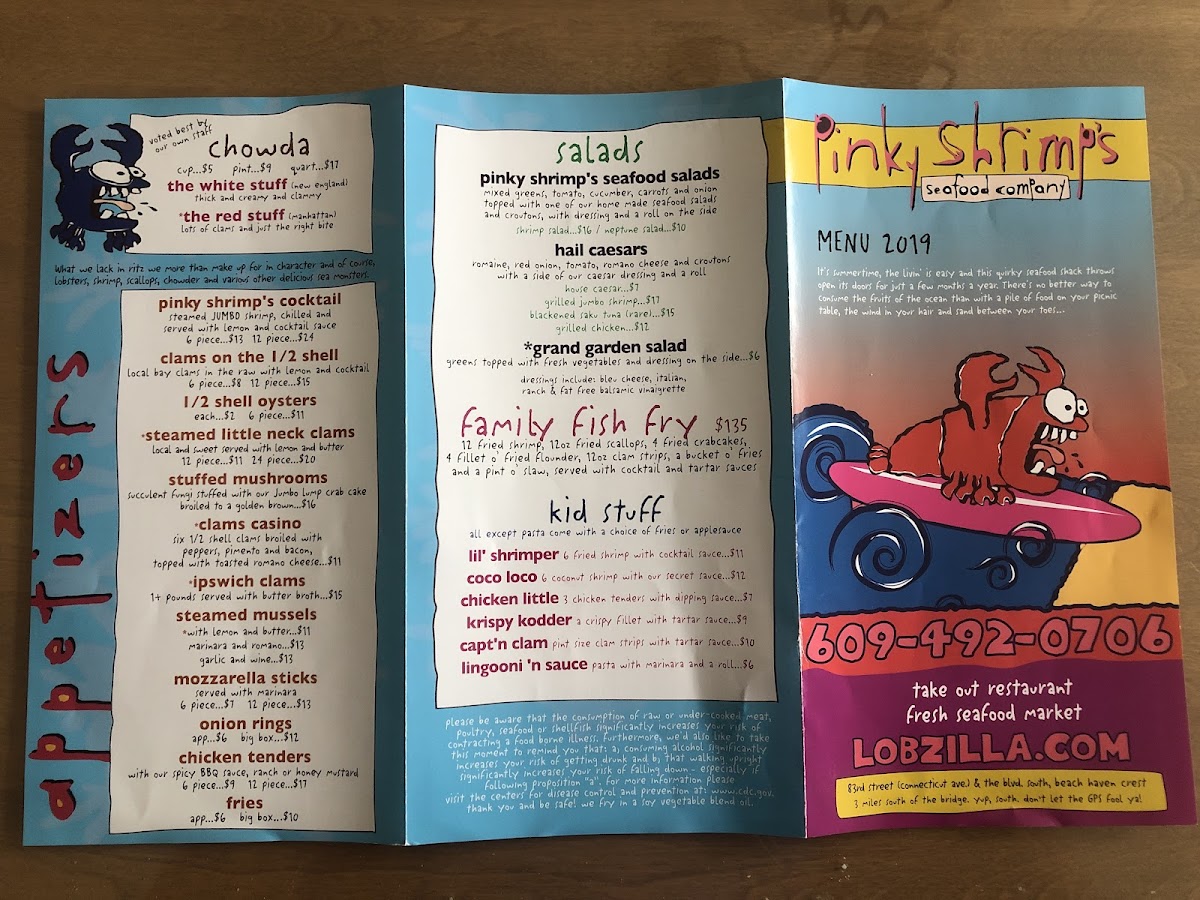 voted best by
our own staff
chowda
cup...$5 pint...$9 quart...$17
the white stuff (new england)
thick and creamy and clammy
*the red stuff (manhattan)
lots of clams and just the right bite
What we lack in ritz we more than make up for in character and of course,
lobsters, shrimp, scallops, chowder and various other delicious sea monsters.
appetizers
pinky shrimp's cocktail
steamed JUMBO shrimp, chilled and
served with lemon and cocktail sauce
6 piece...$13 12 piece...$24
clams on the 1/2 shell
local bay clams in the raw with lemon and cocktail
6 piece...$8 12 piece...$15
1/2 shell oysters
each...$2 6 piece...$11
*steamed little neck clams
local and sweet served with lemon and butter
12 piece...$11 24 piece...$20
stuffed mushrooms
succulent fungi stuffed with our Jumbo Lump crab cake
broiled to a golden brown...$16
*clams casino
six 1/2 shell clams broiled with
peppers, pimento and bacon,
topped with toasted romano cheese...$11
*ipswich clams
1+ pounds served with butter broth...$15
steamed mussels
*with lemon and butter...$11
marinara and romano...$13
garlic and wine...$13
mozzarella sticks
served with marinara
6 piece...$7 12 piece...$13
onion rings
app...$6 big box...$12
chicken tenders
with our spicy BBQ sauce, ranch or honey mustard
6 piece...$9 12 piece...$17
fries
app...$6 big box...$10
salads
pinky shrimp's seafood salads
mixed greens, tomato, cucumber, carrots and onion
topped with one of our home made seafood salads
and croutons, with dressing and a roll on the side
shrimp salad...$16 / neptune salad...$10
hail caesars
romaine, red onion, tomato, romano cheese and croutons
with a side of our caesar dressing and a roll
house caesar...$7
grilled jumbo shrimp...$17
blackened saku tuna (rare)...$15
grilled chicken...$12
*grand garden salad
greens topped with fresh vegetables and dressing on the side...$6
dressings include: bleu cheese, italian,
ranch & fat free balsamic vinaigrette
family fish fry $135
12 fried shrimp, 12oz fried scallops, 4 fried crabcakes,
4 fillet o' fried flounder, 12oz clam strips, a bucket o' fries
and a pint o' slaw, served with cocktail and tartar sauces
kid stuff
all except pasta come with a choice of fries or applesauce
lil' shrimper 6 fried shrimp with cocktail sauce...$11
coco loco 6 coconut shrimp with our secret sauce...$12
chicken little 3 chicken tenders with dipping sauce...$7
krispy kodder a crispy fillet with tartar sauce...$9
capt'n clam pint size clam strips with tartar sauce...$10
lingooni 'n sauce pasta with marinara and a roll...$6
please be aware that the consumption of raw or under-cooked meat,
poultry, seafood or shellfish significantly increases your risk of
contracting a food borne illness. furthermore, we'd also like to take
this moment to remind you that: a; consuming alcohol significantly
increases your risk of getting drunk and b; that walking upright
significantly increases your risk of falling down - especially if
following proposition "a". for more information please
visit the centers for disease control and prevention at: www.cdc.gov.
thank you and be safe! we fry in a soy vegetable blend oil.
Pinky Shrimp's
seafood company
MENU 2019
It's summertime, the livin' is easy and this quirky seafood shack throws
open its doors for just a few months a year. There's no better way to
consume the fruits of the ocean than with a pile of food on your picnic
table, the wind in your hair and sand between your toes...
609-492-0706
take out restaurant
fresh seafood market
LOBZILLA.COM
83rd street (connecticut ave.) & the blvd. south, beach haven crest
3 miles south of the bridge. yup, south. don't let the GPS fool ya!